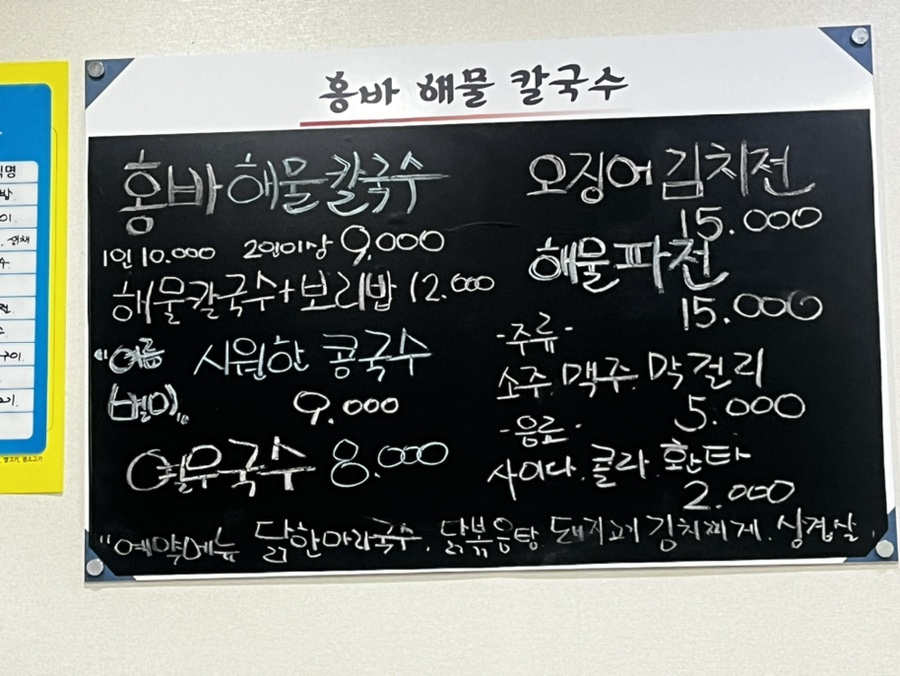 홍바 해물 칼국수
홍바 해물칼국수
1인 10.000 2인이상 9,000
해물칼국수+보리밥 12.000
"여름 시원한 콩국수
별미" 9.000
열무국수 8.000
오징어 김치전
15.000
해물파전
15.000
-주류-
소주 맥주. 막걸리
5.000
-음료-
사이다. 콜라. 환타
2.000
"예약메뉴 닭한마리국수. 닭볶음탕 돼지고기 김치찌게. 삼겹살